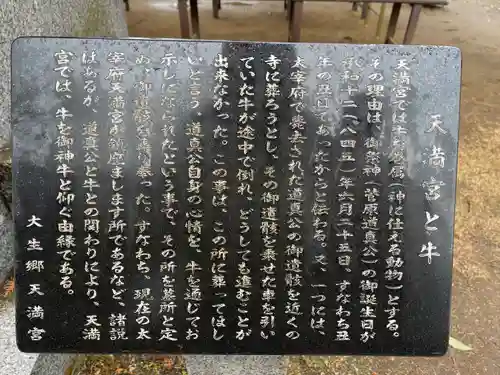 天満宮と牛
天満宮では牛を眷属（神に仕える動物）とする。
その理由は、御祭神（菅原道真公）の御誕生日が
承和十二（八四五）年六月二十五日、すなわち丑
年の丑日であったからと伝わる。又、一つには、
太宰府で薨去された道真公の御遺骸を近くの
寺に葬ろうとし、その御遺骸を乗せた車を引い
ていた牛が途中で倒れ、どうしても進むことが
出来なかった。この事は、この所に葬ってほし
いと言う、道真公自身の心情を、牛を通じてお
示しになられたという事で、その所を墓所と定
め、御遺骸を葬り奉った。すなわち、現在の太
宰府天満宮が鎮座まします所であるなど、諸説
はあるが、道真公と牛との関わりにより、天満
宮では、牛を御神牛と仰ぐ由縁である。
大生郷天満宮